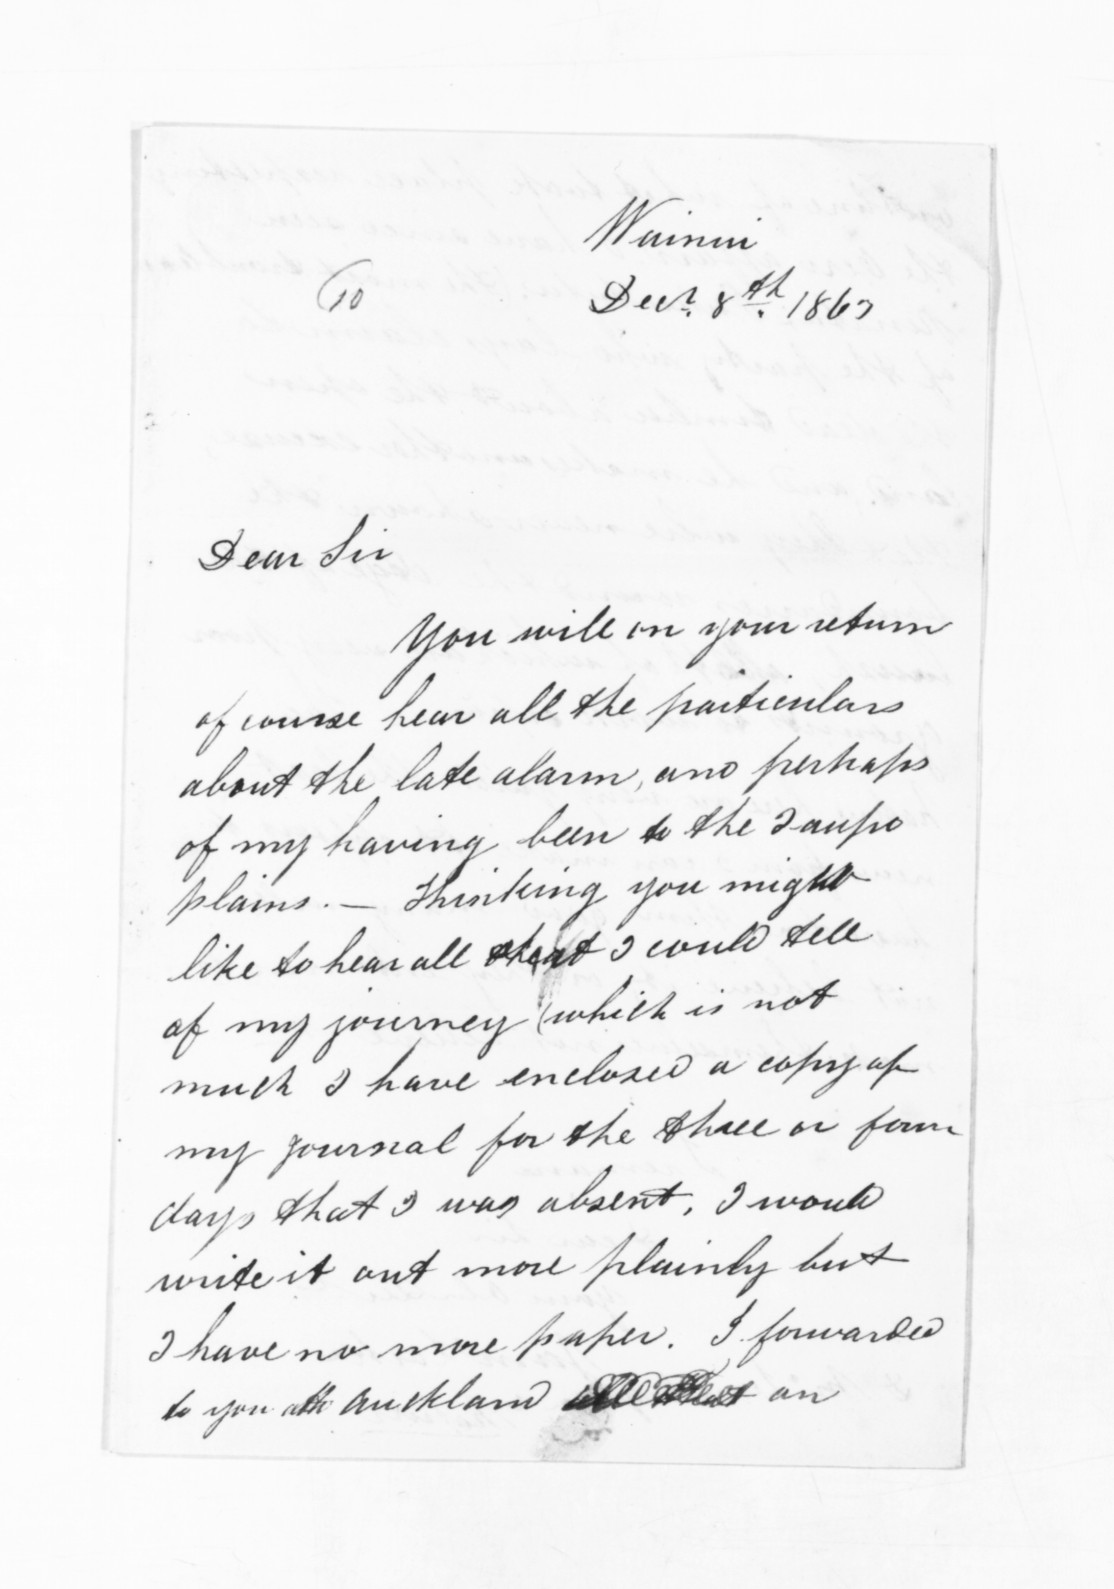 Wainui
(10
Decr. 8th. 1867
Dear Sir
You will on your return
of course hear all the particulars
about the late alarm, and perhaps
of my having been to the Taupo
plains. — Thinking you might
like to hear all that I could tell
of my journey (which is not
much I have enclosed a copy of
my journal for the three or four
days that I was absent. I would
write it out more plainly but
I have no more paper. I forwarded
to you at Auckland an